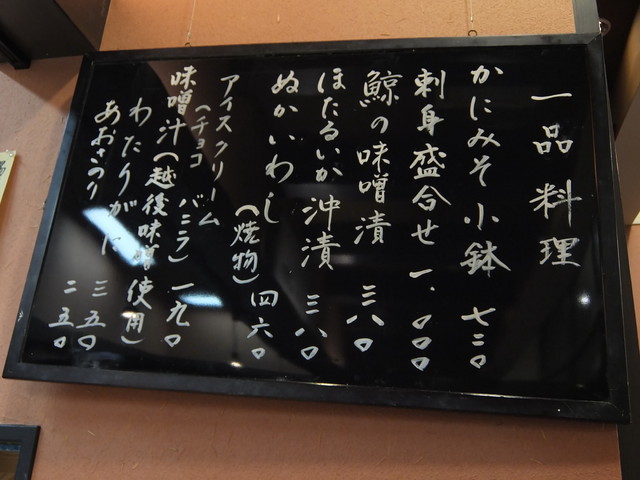 一品料理
かにみそ小鉢 七二〇
刺身盛合せ 一、〇〇〇
鯨の味噌漬 三八〇
ほたるいか沖漬 三八〇
ぬかいわし(焼物) 四六〇
アイスクリーム
(チョコ バニラ) 一九〇
味噌汁(越後味噌使用)
わたりがに 三五〇
あおさのり 二五〇